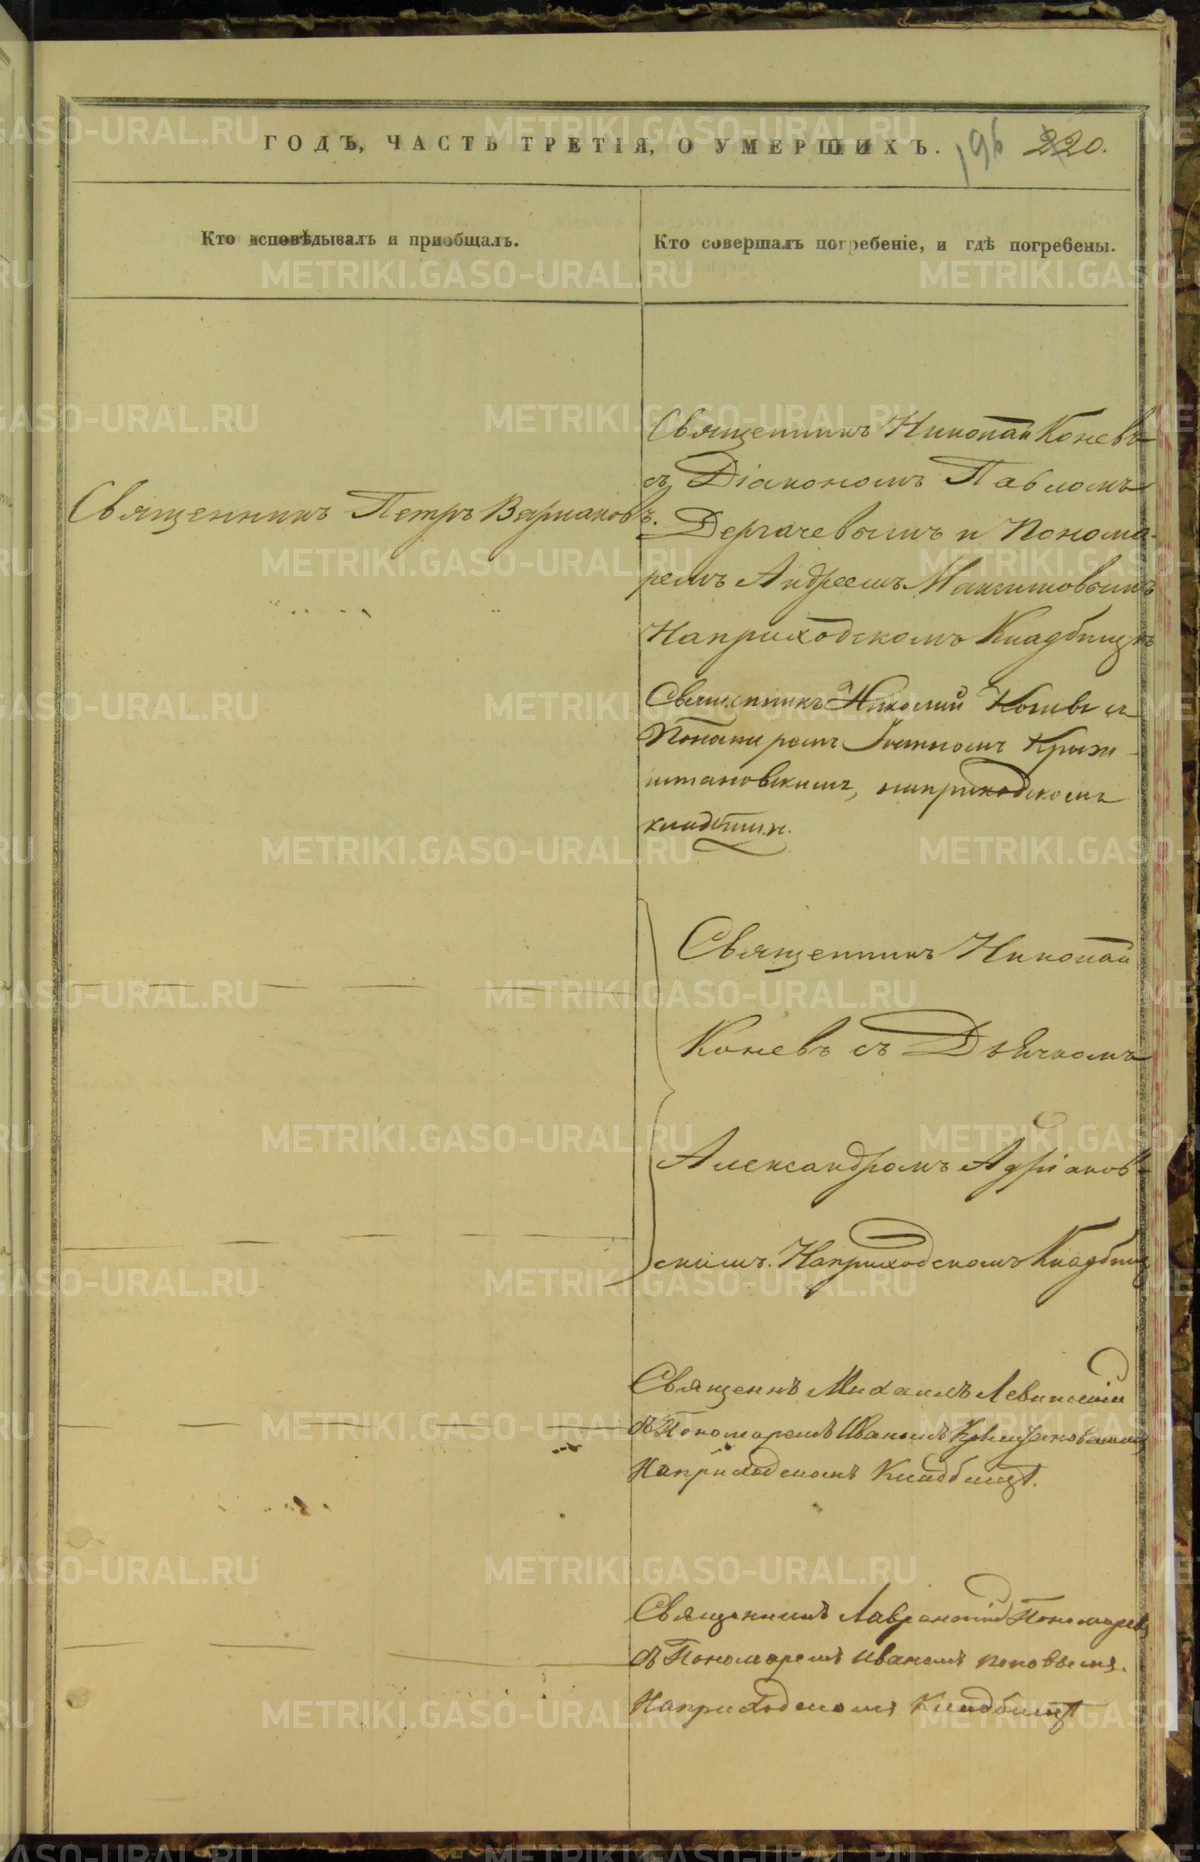 ГОДЪ, ЧАСТЬ ТРЕТІЯ, О УМЕРШИХЪ. 196 220.
Кто исповѣдывалъ и пріобщалъ.
Кто совершалъ погребеніе, и гдѣ погребены.
Священникъ Петръ
Священникъ Николай Коневъ
съ Діакономъ Павломъ
Дергачевымъ и Понома-
ремъ Андреемъ Максимовымъ
На приходскомъ Кладбищѣ
Священникъ Николай Коневъ съ
Понамаремъ Іоанномъ Крыж-
штановскимъ, на приходскомъ
кладбищѣ.
Священникъ Николай
Коневъ съ Дьячкомъ
Александромъ Адріанов-
скимъ. На приходскомъ Кладбищ
Священнъ Михаилъ Левицкій
съ Пономаремъ Иваномъ
На приходскомъ Кладбищѣ.
Священникъ Лаврентій Пономаревъ
съ Пономаремъ Иваномъ Поповымъ.
На приходскомъ Кладбищѣ
METRIKI.GASO-URAL.RU